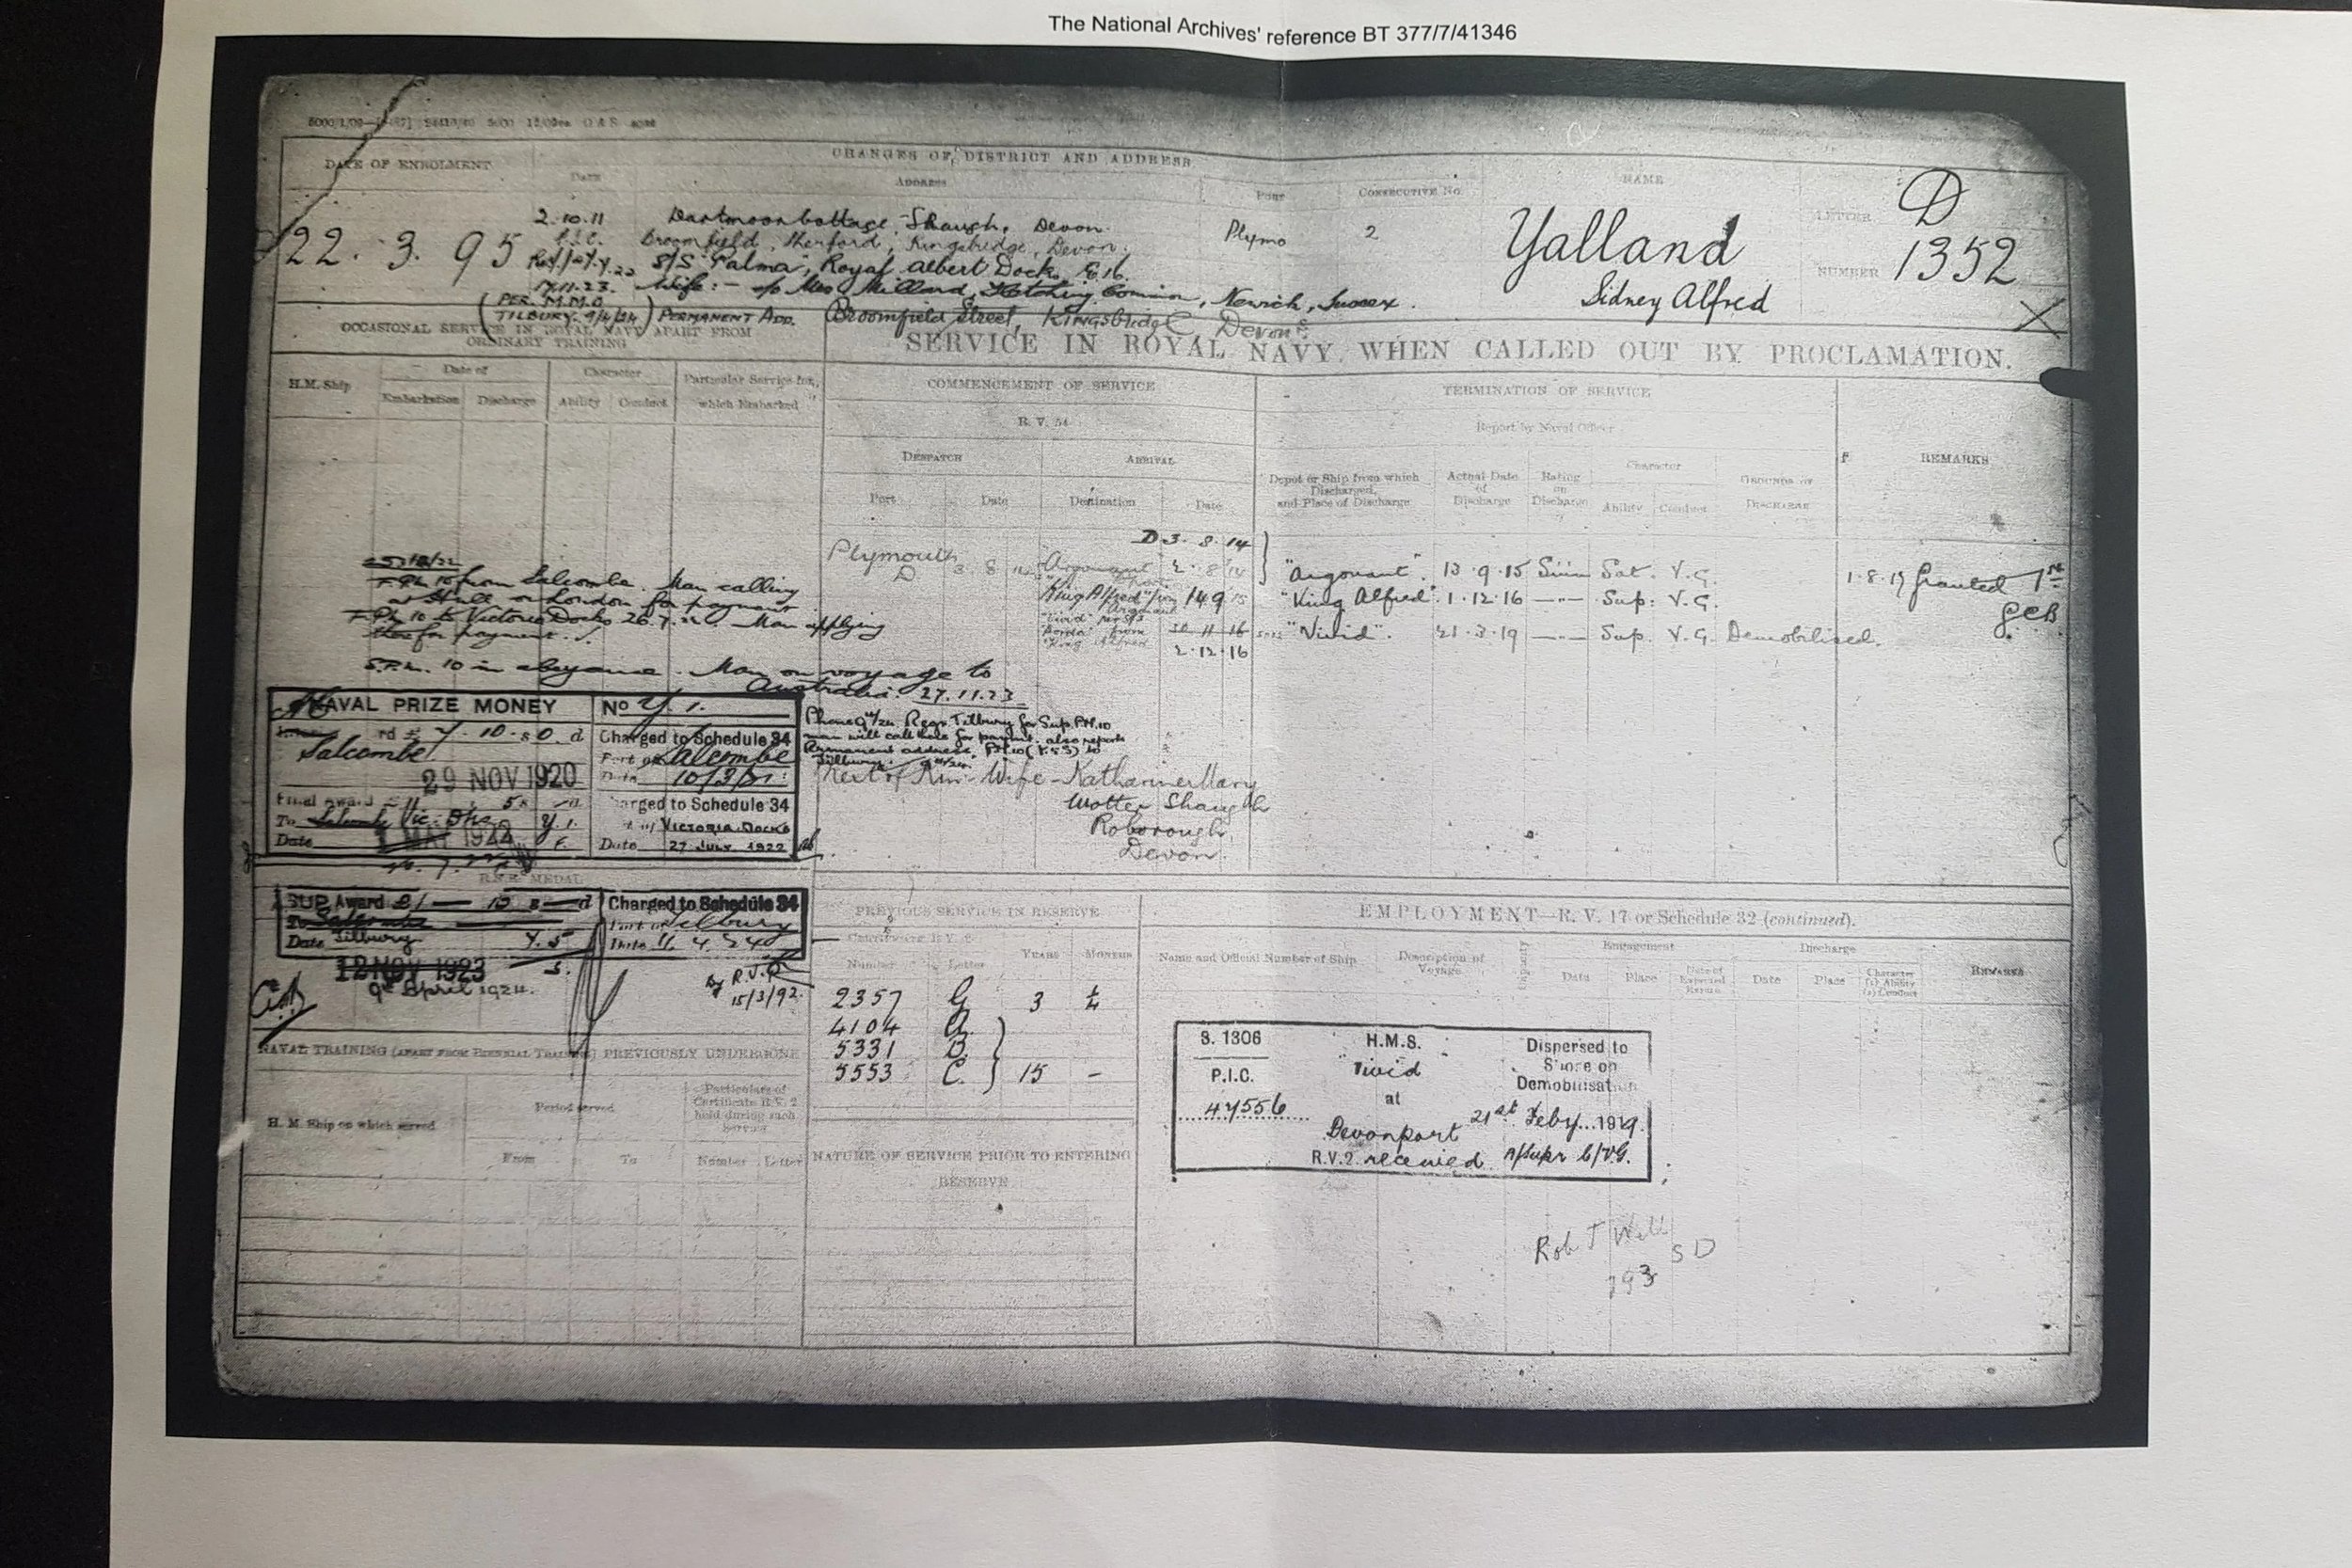 The National Archives' reference BT 377/7/41346
DATE OF ENROLMENT
CHANGES OF DISTRICT AND ADDRESS
Date
Address
Port
Consecutive No.
NAME
LETTER
D
NUMBER
1352
22. 3. 95
2.10.11
Dartmoor Cottage, Shaugh, Devon.
Plymo
2
Yalland
Sidney Alfred
Broomfield, Sherford, Kingsbridge, Devon.
S/S "Palma", Royal Albert Dock, E16.
17.11.23. Wife:- c/o Mrs Millard, Common, Newick, Sussex.
(PER. M.M.O. TILBURY. 9/4/24) PERMANENT ADD. Broomfield Street, Kingsbridge, Devon
OCCASIONAL SERVICE IN ROYAL NAVY APART FROM
ORDINARY TRAINING
SERVICE IN ROYAL NAVY, WHEN CALLED OUT BY PROCLAMATION.
H.M. Ship
Date of
Embarkation
Discharge
Character
Ability
Conduct
Particular Service for
which Embarked
COMMENCEMENT OF SERVICE
R. V. 54
Despatch
Arrival
Port
Date
Destination
Date
TERMINATION OF SERVICE
Report by Naval Officer
Depot or Ship from which
Discharged,
and Place of Discharge
Actual Date
of
Discharge
Rating
on
Discharge
Character
Ability
Conduct
Grounds of
Discharge
REMARKS
D 3. 8. 14
Plymouth
D
3 8 14
"Argonaut"
2. 8. 14
"Argonaut". 13.9.15 Sat. V.G.
1.8.17 Granted 1st
GCB.
"King Alfred"
14 9 15
"King Alfred". 1.12.16 —"— Sup: V.G.
30 11 16
"Vivid". 21.3.19 —"— Sup. V.G. Demobilised.
2.12.16
from Salcombe. Man calling
at Hull or London for payment.
10 to Victoria Docks 26.7.22. Man applying
for payment.
10 in abeyance. Man on voyage to
Australia. 27.11.23
NAVAL PRIZE MONEY
No Y. 1.
Salcombe
Charged to Schedule 34
Port of Salcombe
29 NOV 1920
Date 10/3/21
Final Award
Charged to Schedule 34
VICTORIA DOCKS
Date 27 JULY. 1922
Regr. Tilbury for Sup. PM.10
man will call here for payment. also reports
Permanent address.
Tilbury.
Next of Kin - Wife - Katharine Mary
Wotter Shaugh
Roborough,
Devon.
R.N.R. MEDAL
SUP. Award £1 — 10 s — d
Charged to Schedule 34
Port of Tilbury
To Salcombe
Date Tilbury Y. 5
Date 11. 4. 24
12 NOV 1923
9th April 1924.
By R.J.
15/3/92.
NAVAL TRAINING (APART FROM BIENNIAL TRAINING) PREVIOUSLY UNDERGONE
H. M. Ship on which served
Period served
From
To
Particulars of
Certificate R.V. 2
held during such
Service
Number
Letter
PREVIOUS SERVICE IN RESERVE
Certificate R.V. 2
Number
Letter
YEARS
MONTHS
2357 G 3
4104
5331 B.
5553 C. 15 –
NATURE OF SERVICE PRIOR TO ENTERING
RESERVE
EMPLOYMENT—R. V. 17 or Schedule 32 (continued).
Name and Official Number of Ship
Description of
Voyage
Capacity
Engagement
Date
Place
Date of
Expected
Return
Discharge
Date
Place
Character
(1) Ability
(2) Conduct
REMARKS
S. 1306
P.I.C.
47556
H.M.S.
Vivid
at
Devonport
R.V.2. received
Dispersed to
Shore on
Demobilisation
21st Feby 1919.
Rob T Well
S D
793